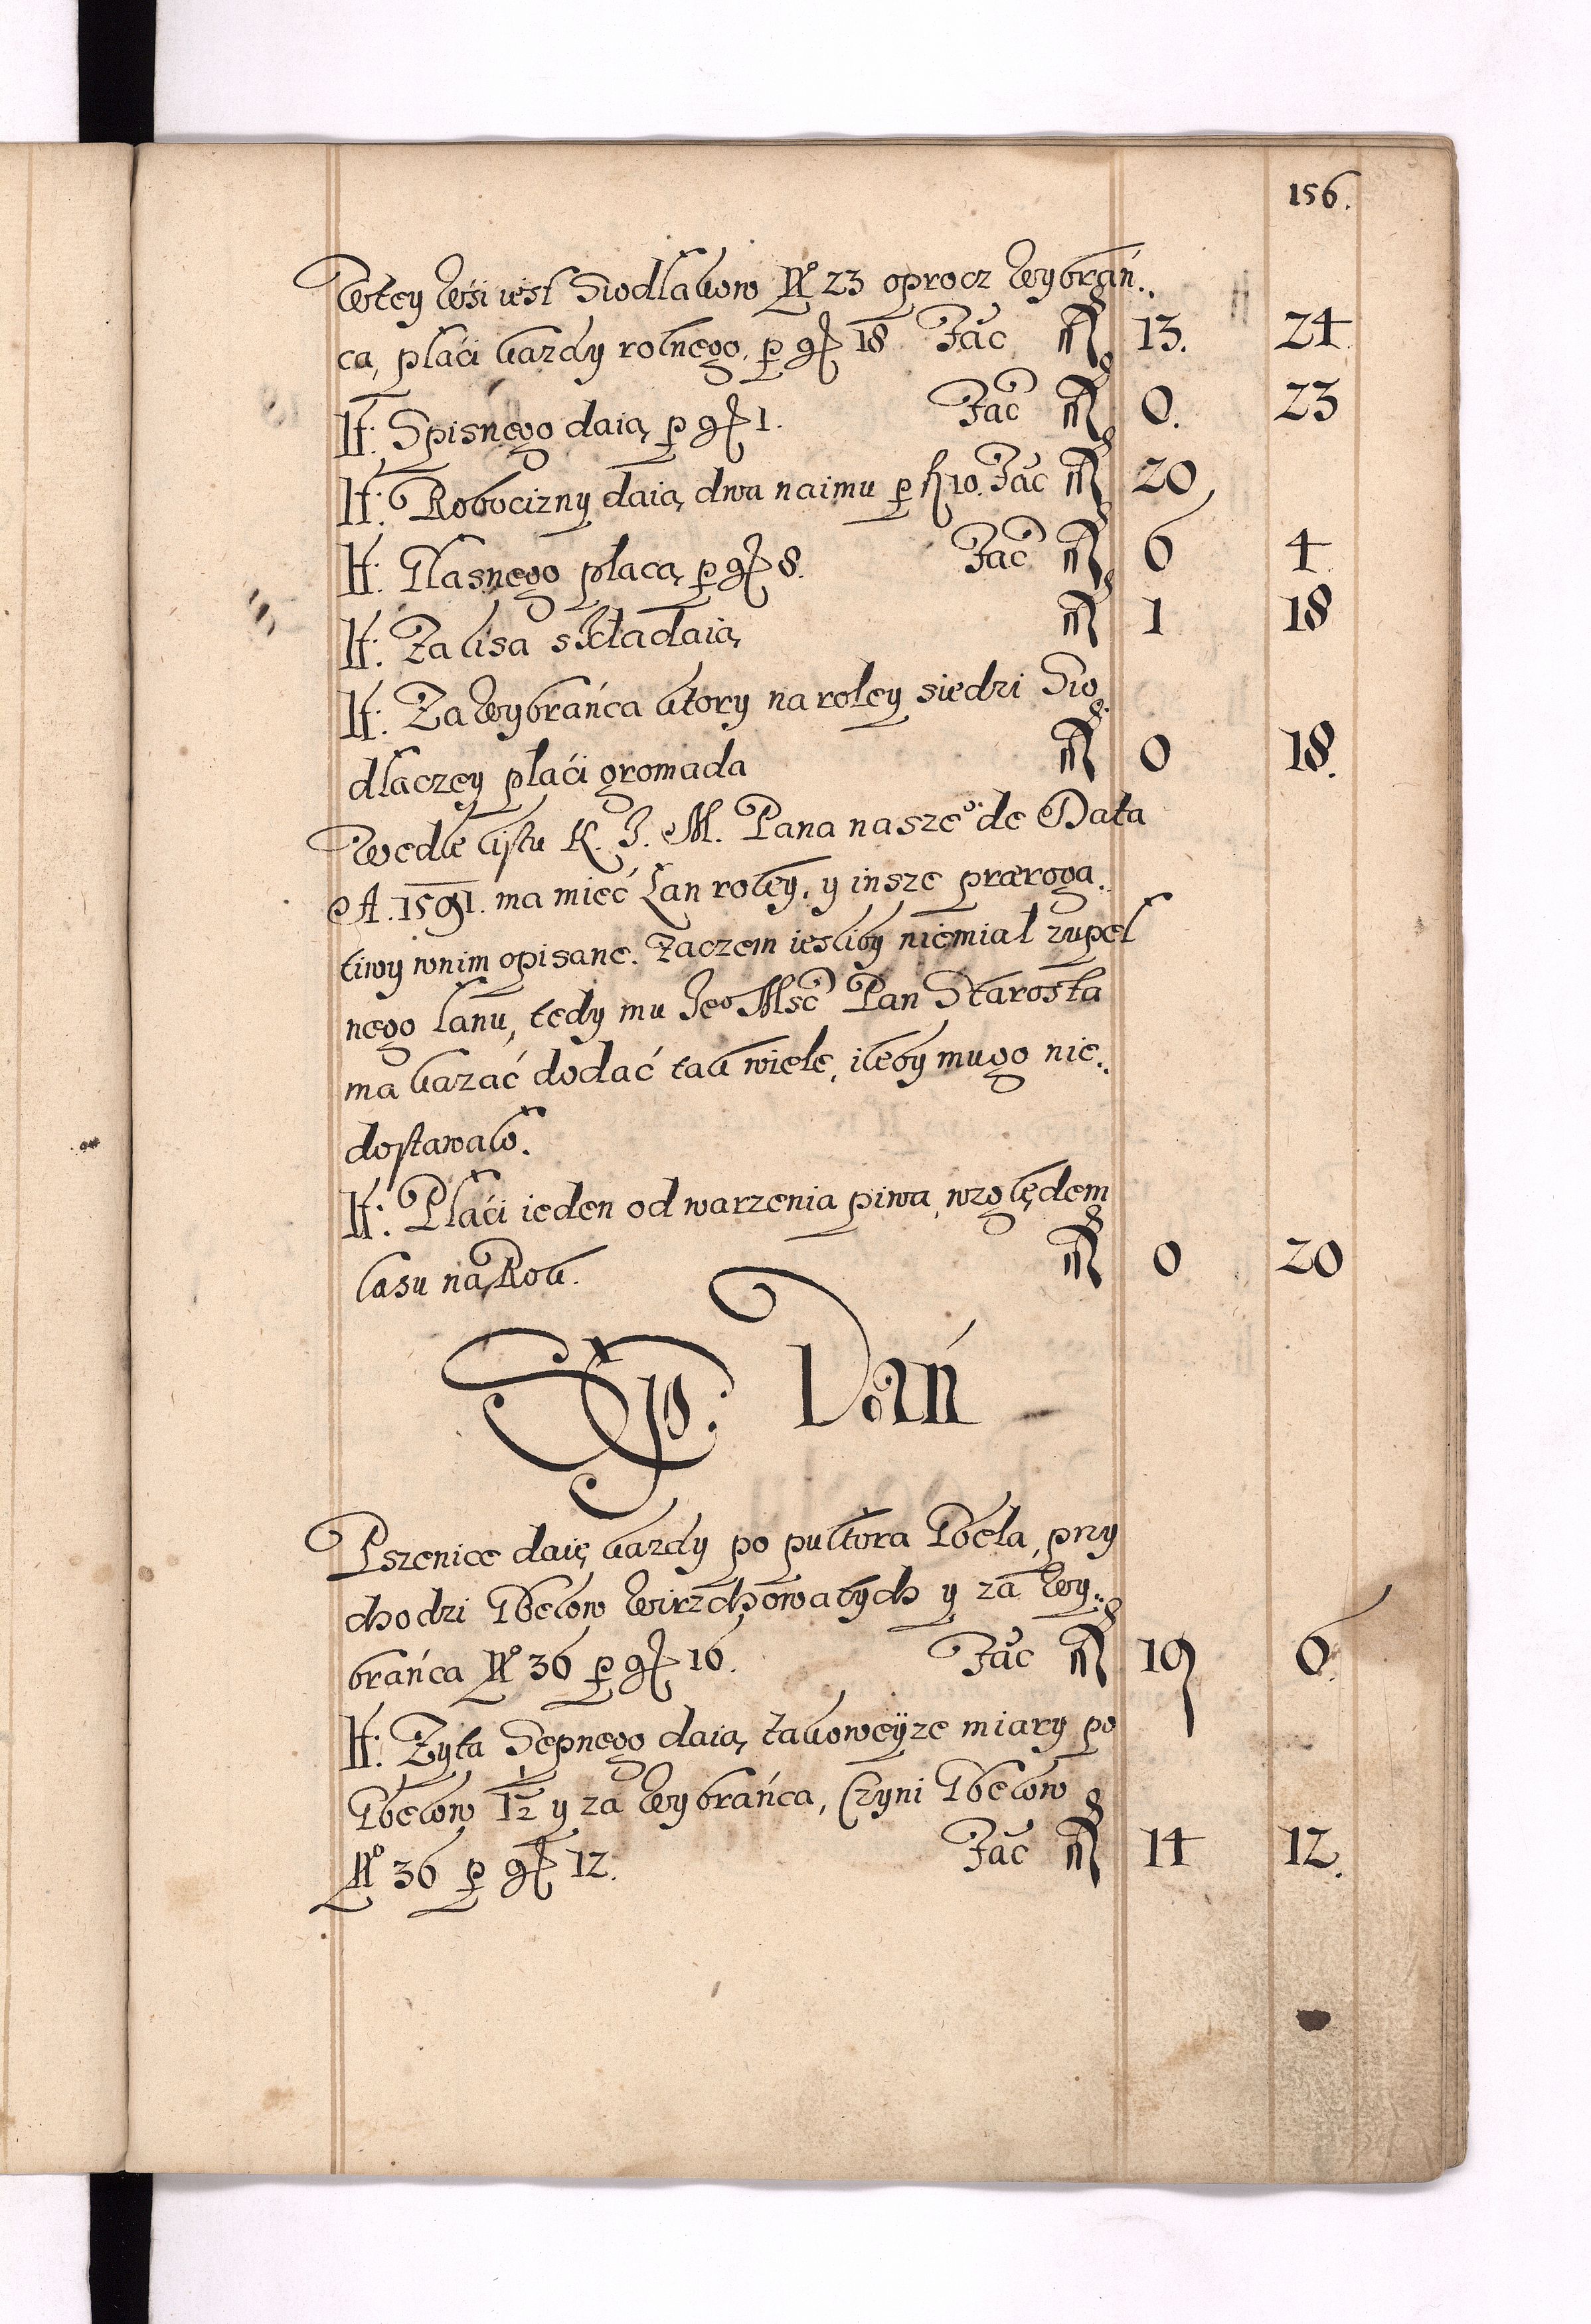 156.
Wtey Wsi iest Siodlakow No 23 oprocz Wybrań..
ca, płaći kazdy rolnego, p gr 18 Fac fl 13. 24
It: Spisnego daią p gr 1. Fac fl 0. 23
It: Robocizny daią dwa naimu p fl 10. Fac fl 20
It: Płasnego placą p gr 8. Fac fl 6 4
It: Za lisa składaią fl 1 18
It: Za Wybrańca ktory na roley siedzi Sio
dlaczey płaći gromada fl 0 18.
Wedle listu K. J. M. Pana nasze° de Data
A. 1591. ma mieć Łan roley, y insze præroga..
tiwy wnim opisane. Zaczem iesliby niemiał zupeł
nego łanu, tedy mu Jeo Msć Pan Starosta
ma kazać dodać tak wiele, ileby mugo nie..
dostawało.
It: Płaći ieden od warzenia piwa, względem
lasu na Rok. fl 0 20
Sp. Dań
Pszenice daię kazdy po pułtora Gbela, przy
chodzi Gbelow Wirzchowatych y za Wy..
brańca No 36 p gr 16. Fac fl 19 6.
It: Zyta Sepnego daią takoweyze miary po
Gbelow 1½ y za Wybrańca, Czyni Gbelow
No 36 p gr 12. Fac fl 14 12.